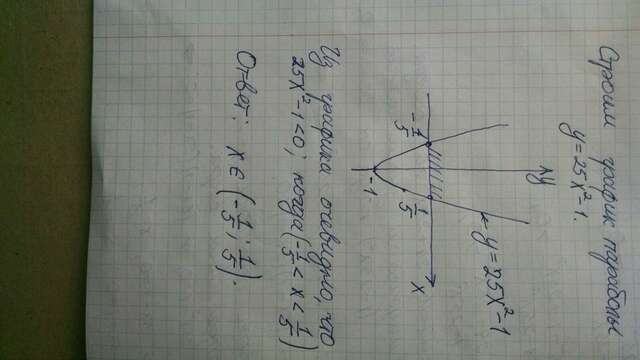 Строим график параболы
y=25x²-1.
y
y=25x²-1
-1/5
1/5
x
-1
Из графика очевидно, что
25x²-1<0; когда (-1/5 < x < 1/5)
Ответ: x ∈ (-1/5; 1/5).